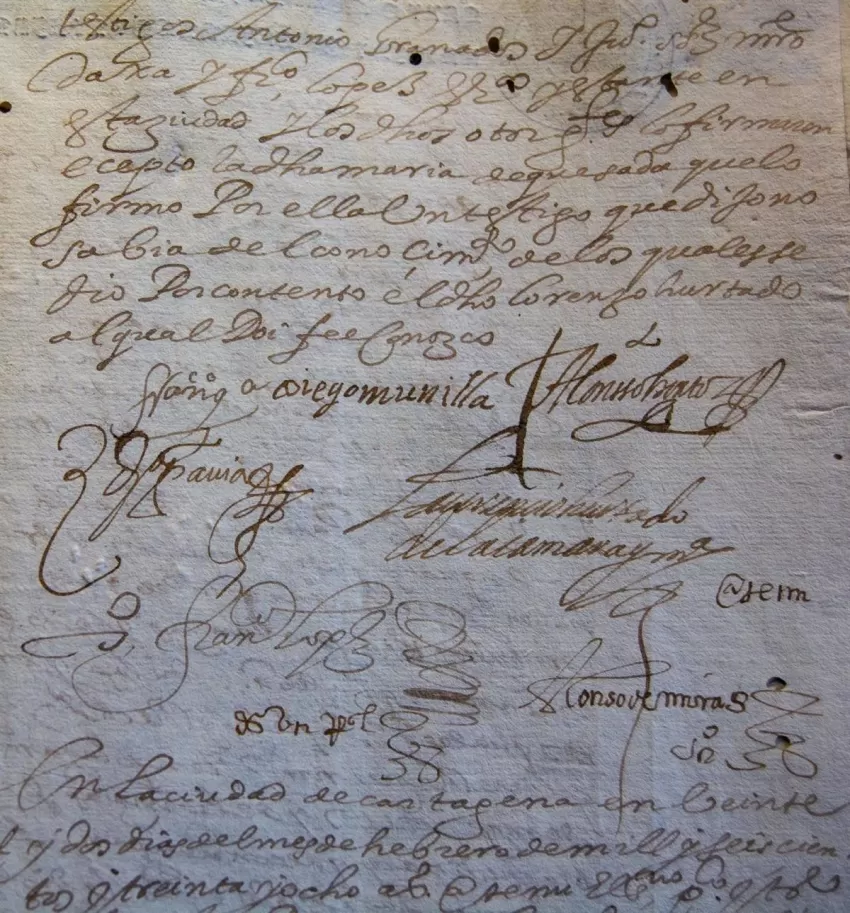 testigos Antonio Granados y Juº. sºz mrº
Daxa y frcº Lopes y estante en
esta ziudad y los dhos otorgtes lo firmaron
ecepto la dha maria de quesada que lo
firmo Por ella Un testigo que dijo no
sabia del conocimº de los quales se
dio Por contento el dho lorenzo hurtado
al qual Doi fee Conozco
diego munilla Alonso
Pavia
hurtado
de la camara y mª
@ temi
Franº Lopz
ds Un Rl
Alonso de
En la ciudad de cartagena en Veinte
y dos dias del mes de hebrero de mill y seiscien
tos y treinta y ocho as. @ temi